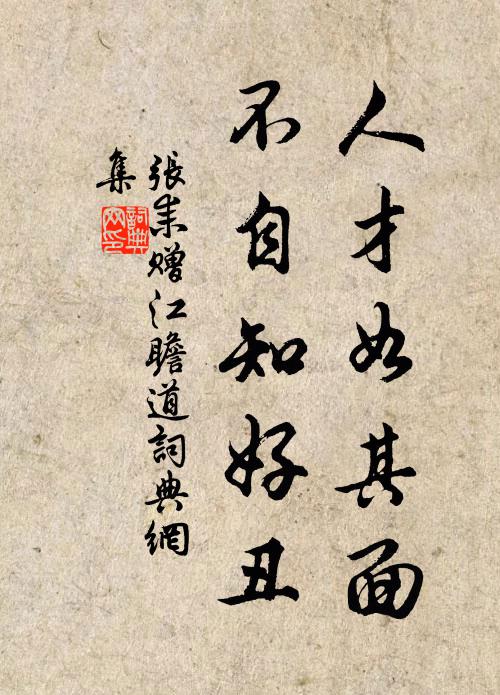 人才如其面
不自知好丑
張耒贈江瞻道詞典網
集
詞典
网印